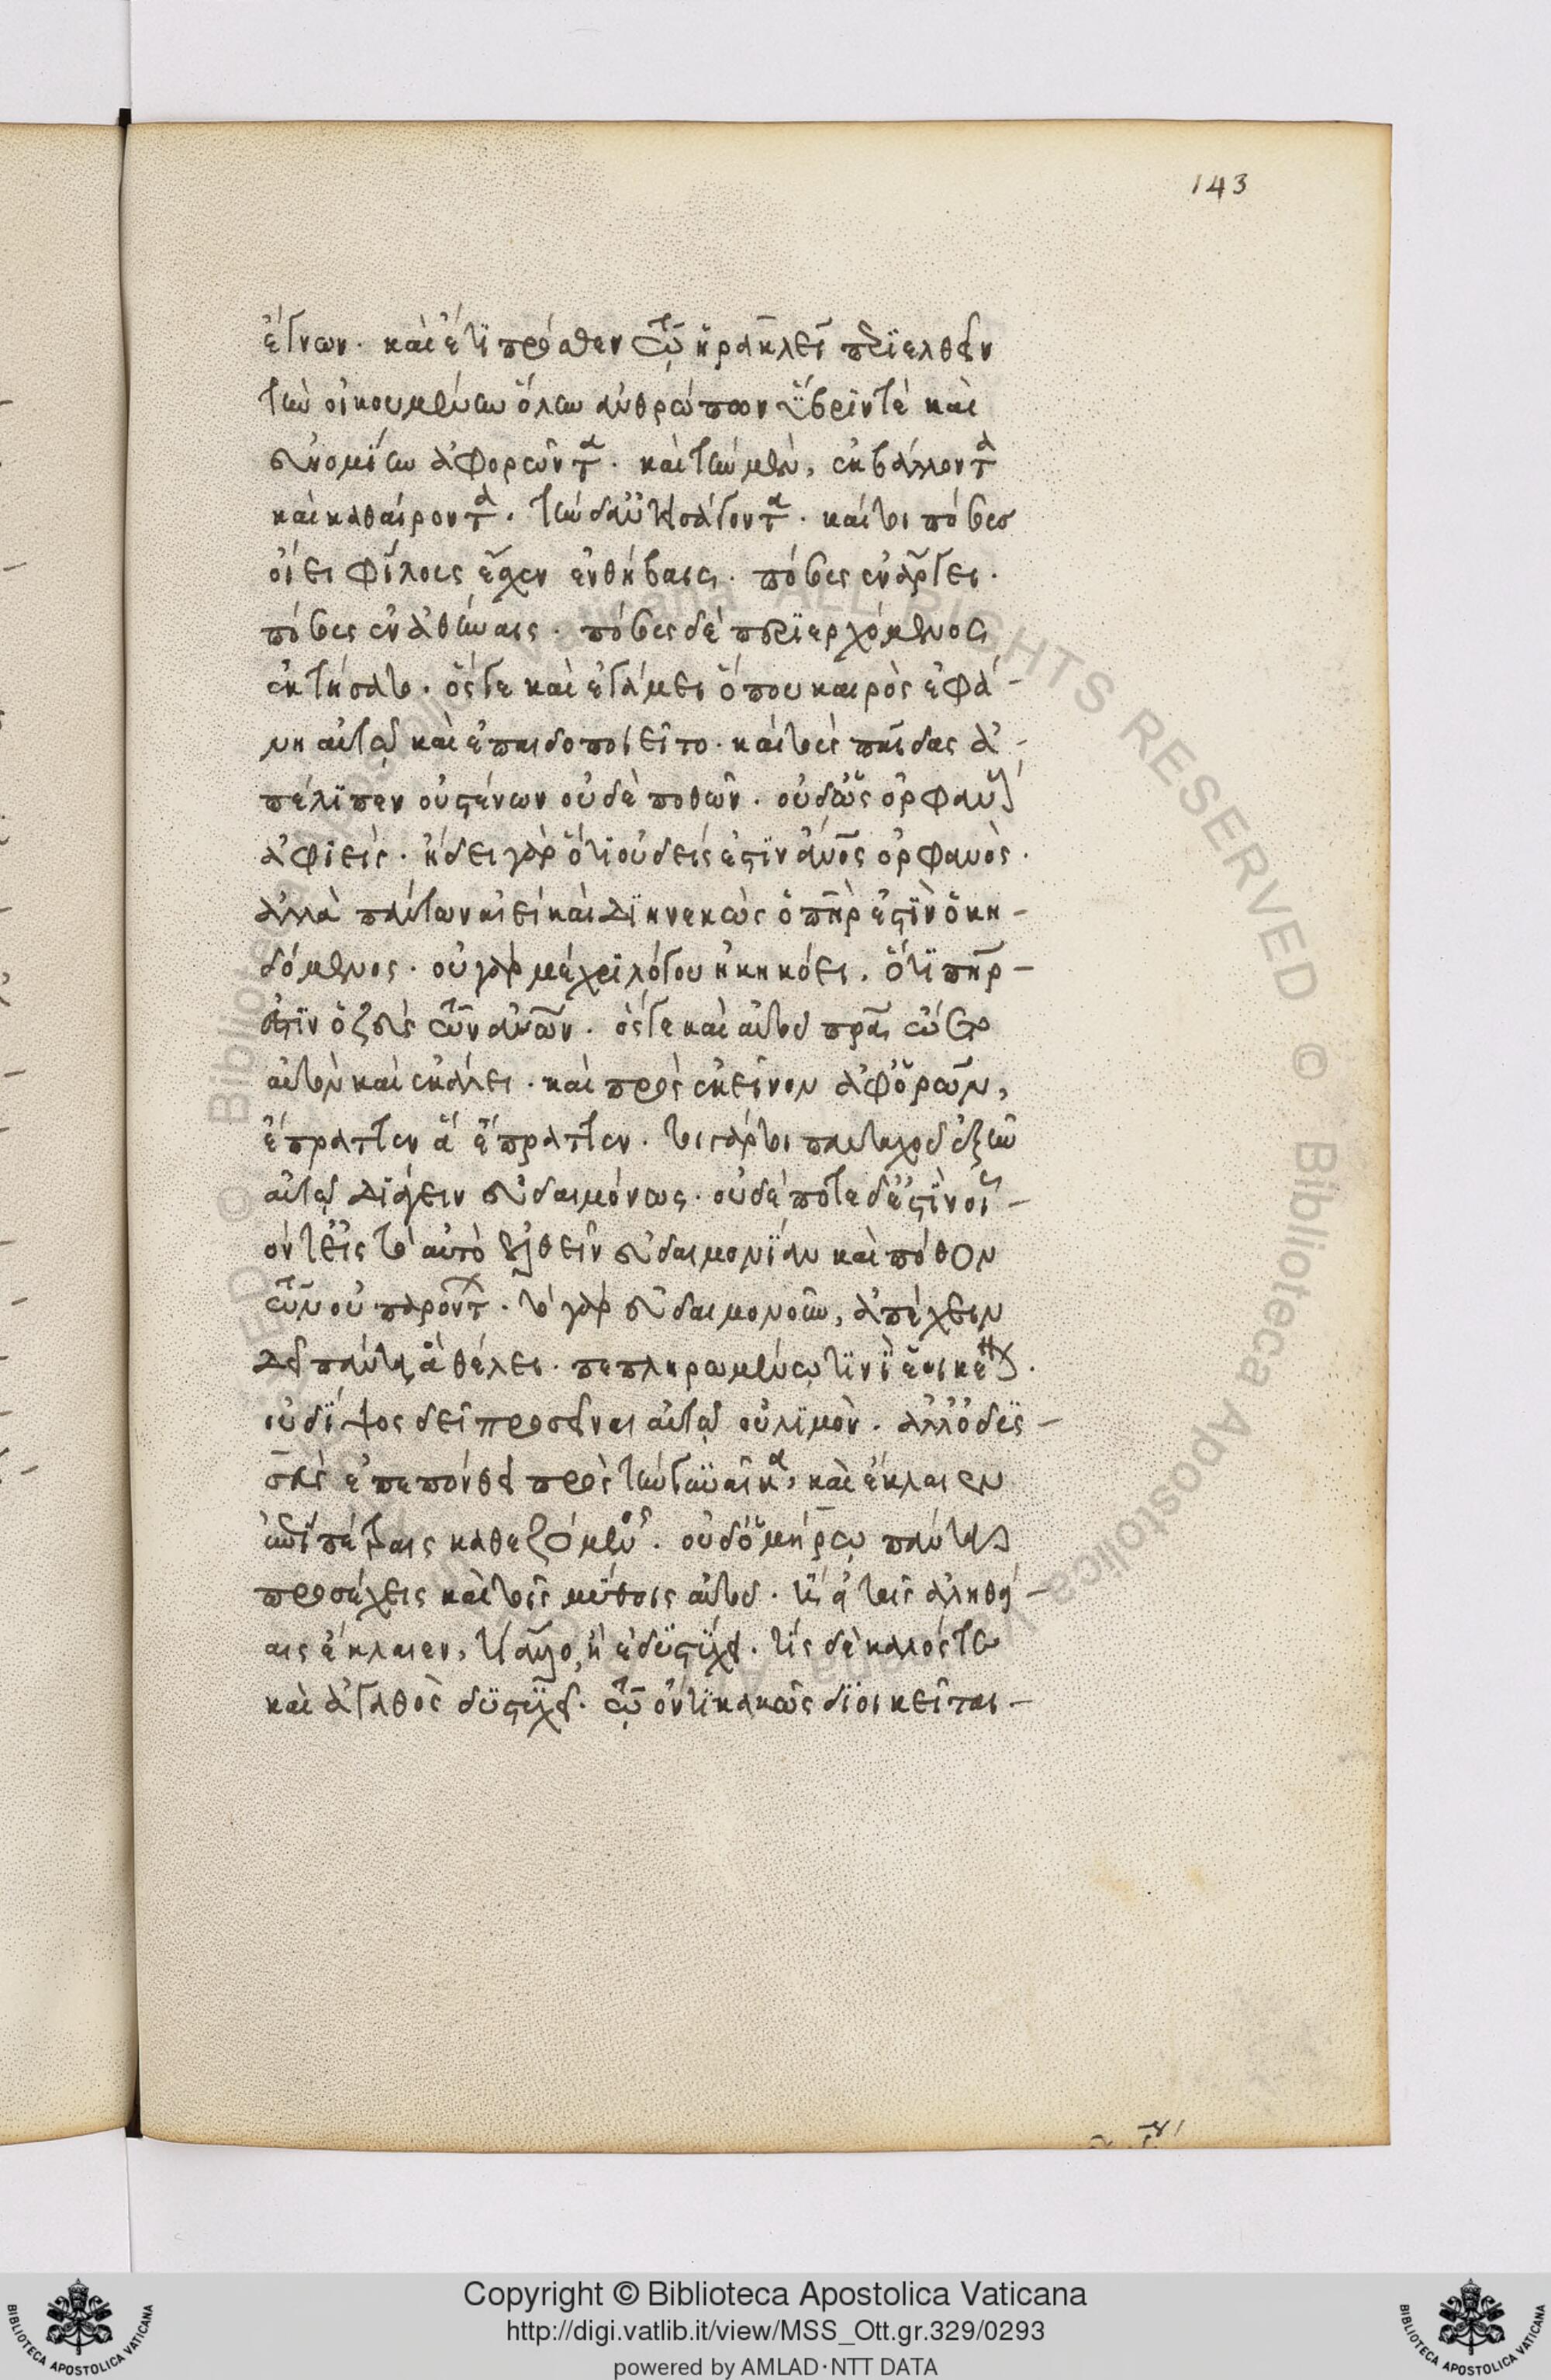 143
ἔγνων· καὶ ἔτι πρόσθεν τῷ ἡρακλεῖ περιελθεῖν
τὴν οἰκουμένην ὅλην ἀνθρώπων ὕβριν τὲ καὶ
εὐνομίην ἀφορῶντα· καὶ τὴν μὲν, ἐκβάλλοντα
καὶ καθαίροντα· τὴν δ' ἀντισάγοντα· καίτοι πόσους
οἴει φίλους ἔσχεν ἐν θήβαις· πόσους ἐν ἄργει·
πόσους ἐν ἀθήναις· πόσους δὲ περιερχόμενος
ἐκτήσατο· ὅς γε καὶ ἐγάμει ὅπου καιρὸς ἐφά-
νη αὐτῷ καὶ ἐπαιδοποιεῖτο· καὶ τοὺς παῖδας ἀ-
πέλιπεν οὐ στένων οὐδὲ ποθῶν· οὐδ' ὡς ὀρφανοὺς
ἀφιείς· ᾔδει γὰρ ὅτι οὐδείς ἐστιν ἄνος ὀρφανὸς·
ἀλλὰ πάντων αἰεὶ καὶ διηνεκῶς ὁ πηρ ἐστὶν ὁ κη-
δόμενος· οὐ γὰρ μέχρι λόγου ἠκηκόει. ὅτι πηρ
ἐστιν ὁ ζεὺς τῶν ἀνων· ὅς γε καὶ αὐτοῦ πρα ᾤετο
αὐτὸν καὶ ἐκάλει· καὶ πρὸς ἐκεῖνον ἀφορῶν,
ἔπραττεν ἃ ἔπραττεν· τοιγάρτοι πανταχοῦ ἐξῆν
αὐτῷ διάγειν εὐδαιμόνως· οὐδέποτε δ' ἐστὶν οἷ-
όν τ' εἰς τὸ αὐτὸ ἐλθεῖν εὐδαιμονίαν καὶ πόθον
τῶν οὐ παρόντων· τὸ γὰρ εὐδαιμονοῦν, ἀπέχειν
δεῖ πάντα ἃ θέλει· πεπληρωμένῳ τινὶ ἐοικέναι·
οὐ δίψος δεῖ προσεῖναι αὐτῷ οὐ λιμὸν· ἀλλ' ὁδυσ-
σεὺς ἐπεπόνθει πρὸς τὴν γυναῖκα, καὶ ἔκλαιεν
ἐπὶ πέτρας καθεζόμενος· σὺ δ' ὁμήρῳ πάντα
προσέχεις καὶ τοῖς μύθοις αὐτοῦ· ἢ ταῖς ἀληθεί-
αις ἔκλαιεν, τί ἄλλο ἢ ἐδυστύχει· τίς δὲ καλός τε
καὶ ἀγαθὸς δυστυχεῖ· τῷ ὄντι κακῶς διοικεῖται
Copyright © Biblioteca Apostolica Vaticana
http://digi.vatlib.it/view/MSS_Ott.gr.329/0293
powered by AMLAD·NTT DATA